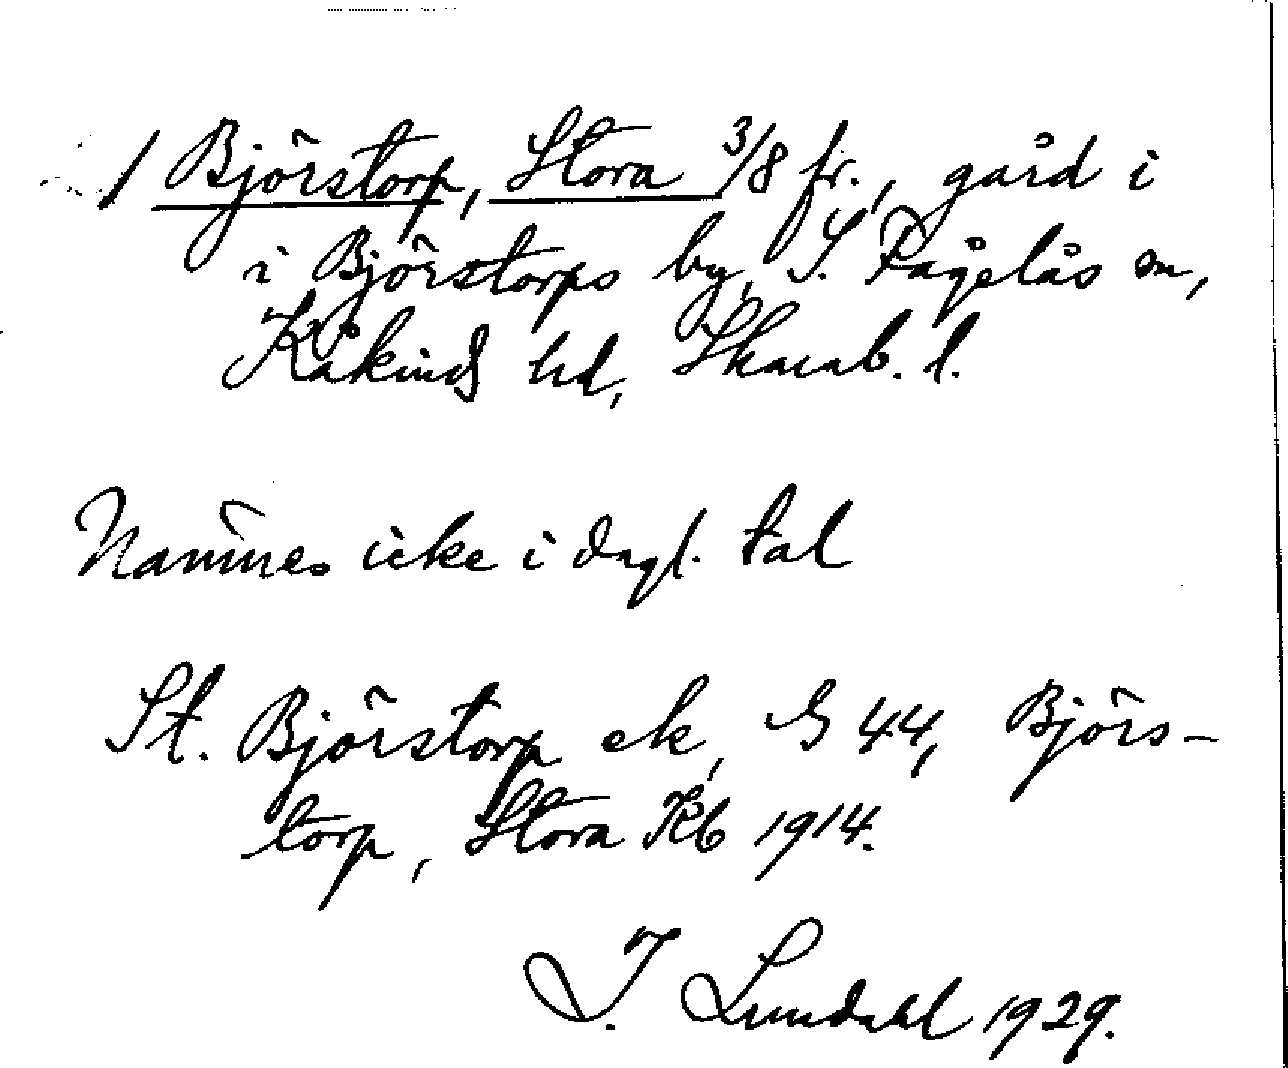 1 Björstorp, Stora 3/8 fr., gård i
i Björstorps by, S. Fågelås sn,
Kåkinds hd, Skarab. l.
Namnes icke i dagl. tal
St. Björstorp ek, G 44, Björs-
torp, Stora Kb 1914.
I. Lundahl 1929.